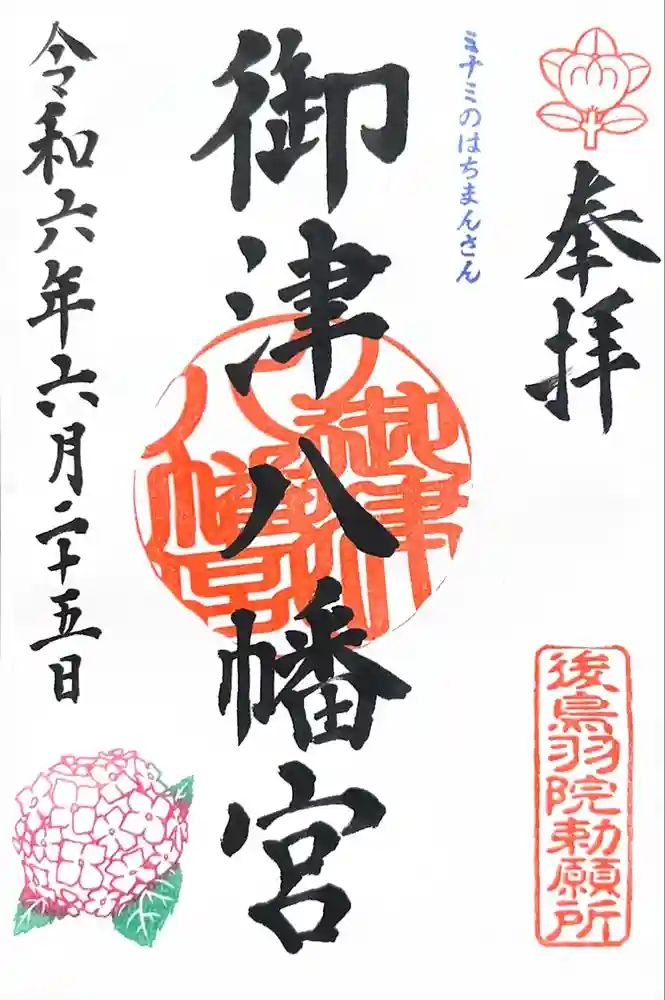 奉拝
後鳥羽院勅願所
ミナミのはちまんさん
御津八幡宮
御津
八幡宮
令和六年六月二十五日